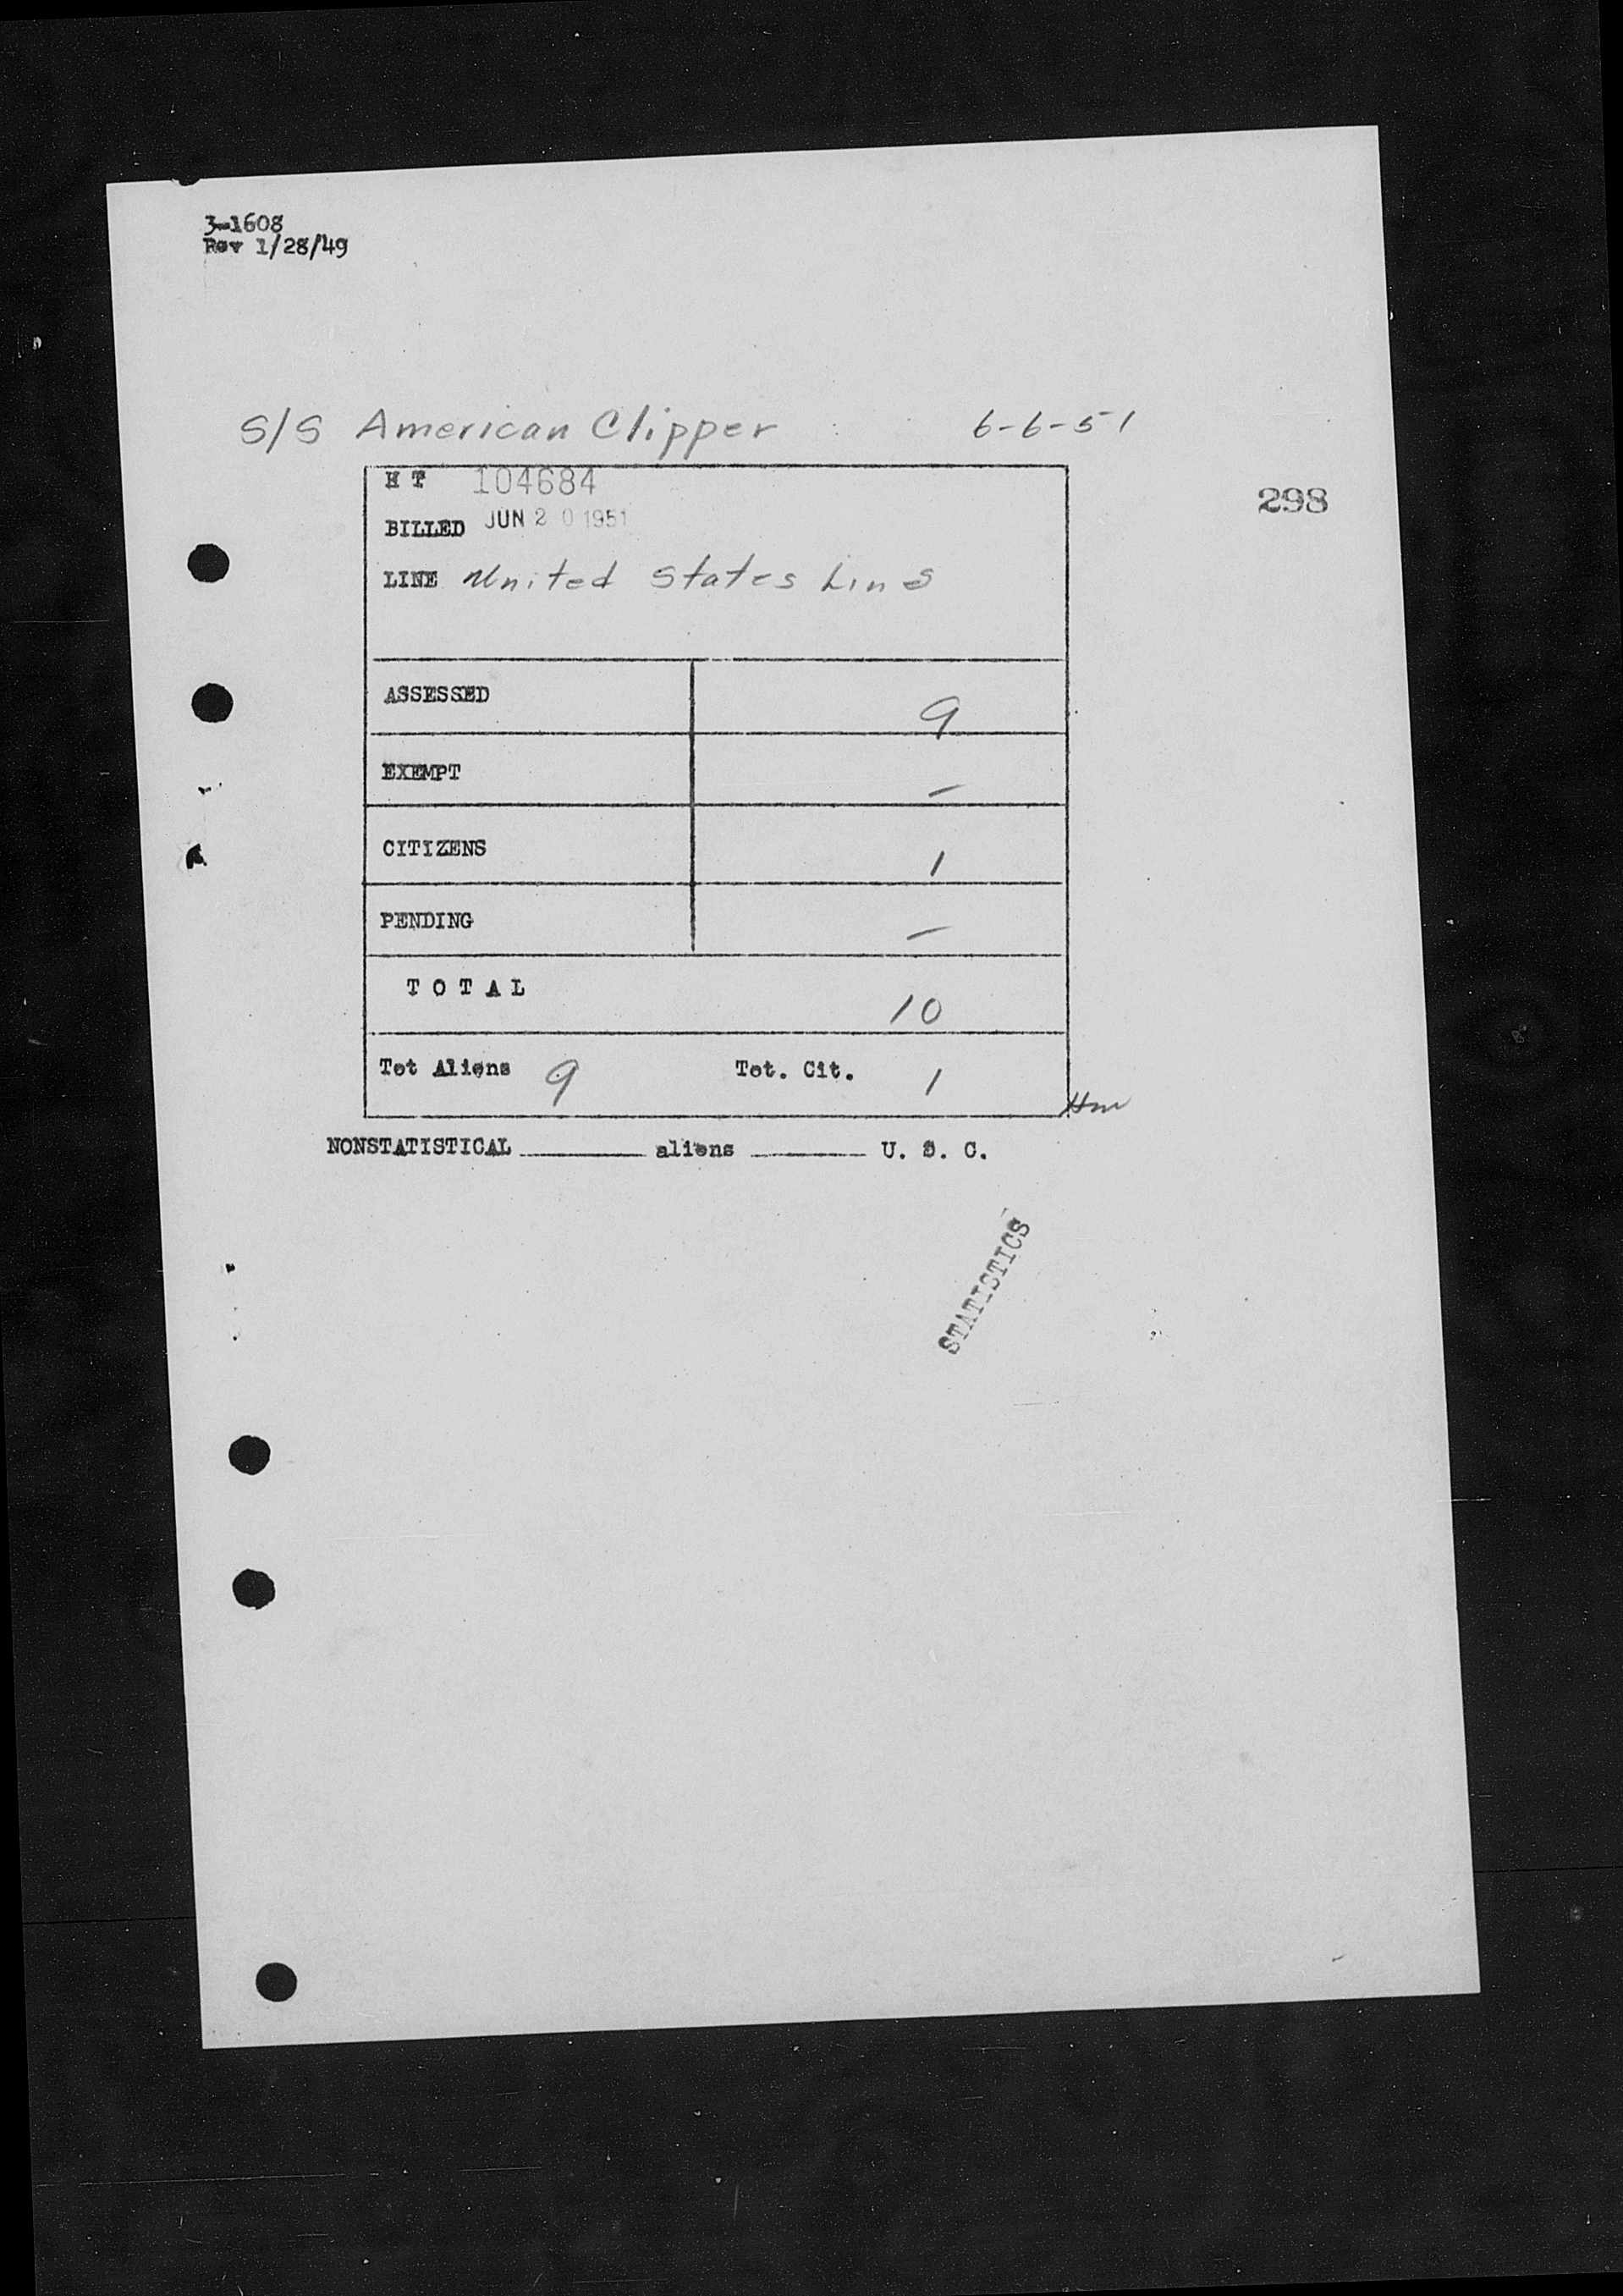 3-1608
Rev 1/28/49
S/S American Clipper 6-6-51
H T 104684
298
BILLED JUN 20 1951
LINE United States Line
ASSESSED 9
EXEMPT –
CITIZENS 1
PENDING –
TOTAL 10
Tot Aliens 9 Tot. Cit. 1
NONSTATISTICAL ______ aliens ______ U. S. C.
STATISTICS